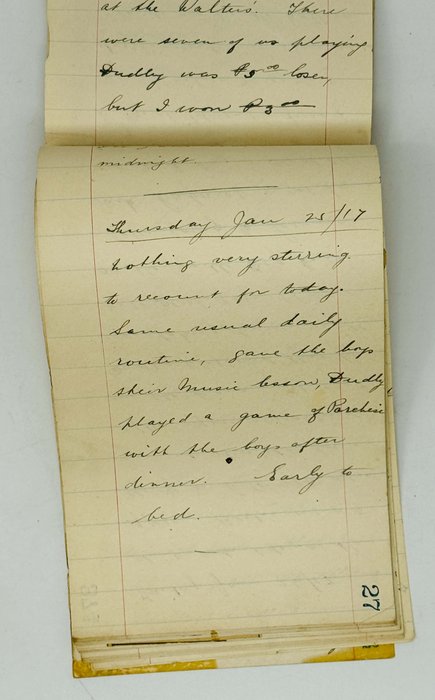 at the Walters'. There
were seven of us playing
Dudly was ₱5.00 loser,
but I won ₱3.00
midnight.
Thursday Jan 25/17
Nothing very sterring
to recount for today.
Same usual daily
routine, gave the boys
their Music lesson, Dudly
played a game of Parchesi
with the boys after
dinner. Early to
bed.
27